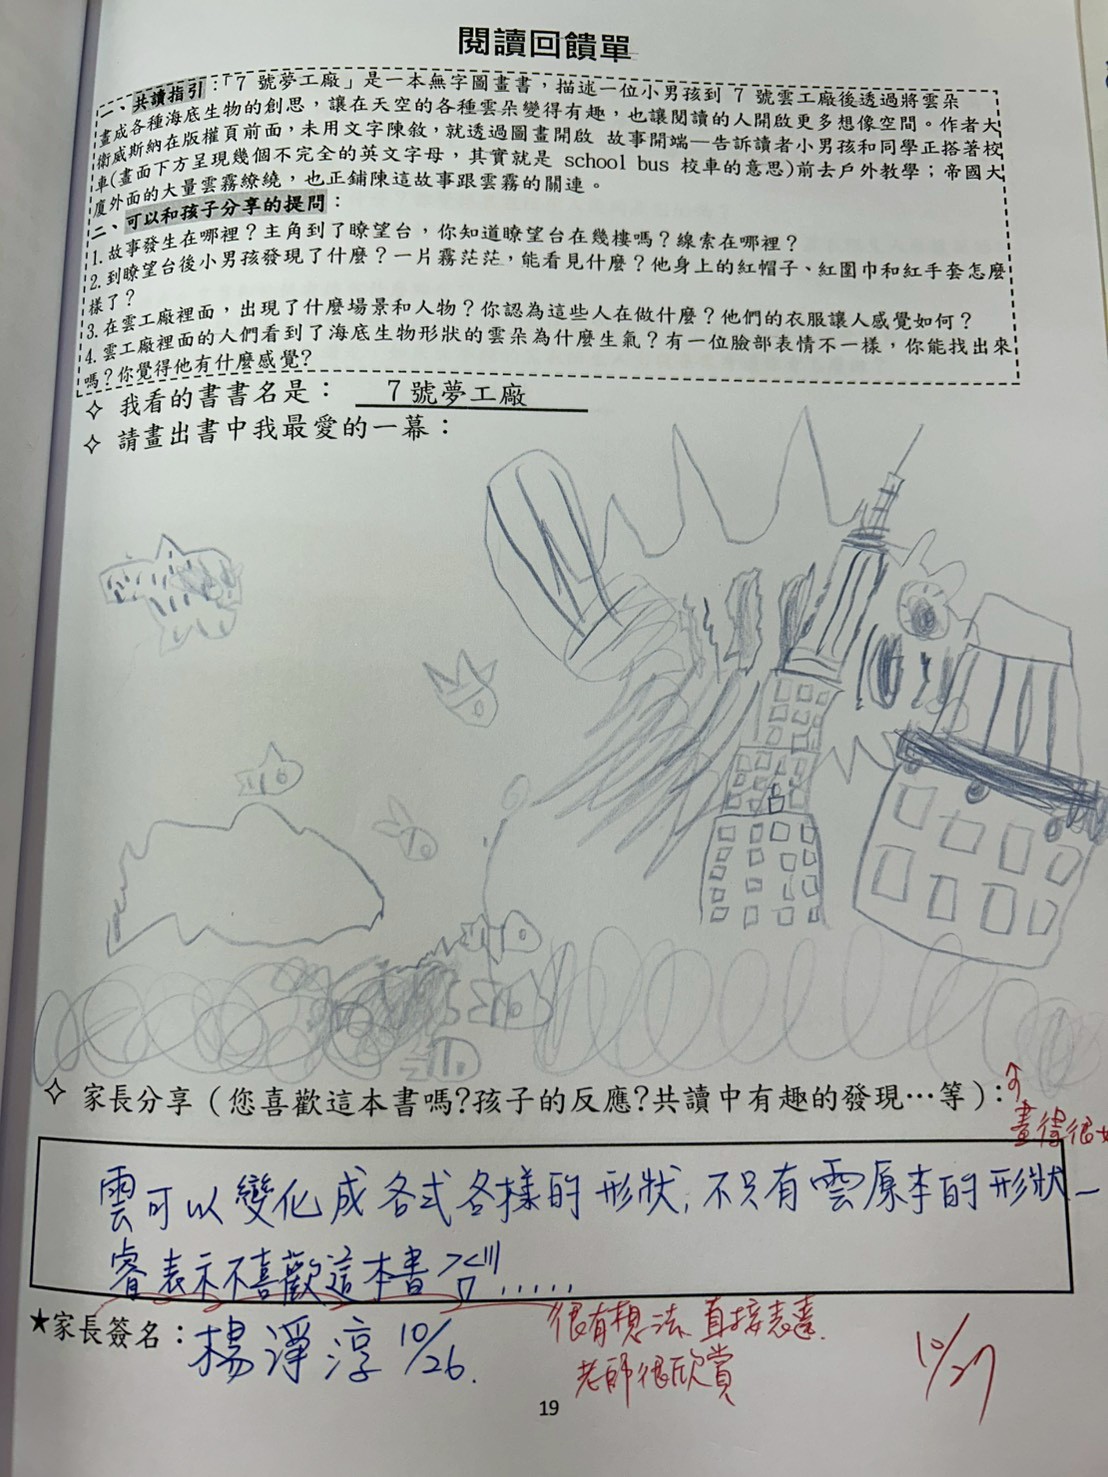 閱讀回饋單
一、共讀指引：「7 號夢工廠」是一本無字圖畫書，描述一位小男孩到 7 號雲工廠後透過將雲朵
畫成各種海底生物的創思，讓在天空的各種雲朵變得有趣，也讓閱讀的人開啟更多想像空間。作者大
衛威斯納在版權頁前面，未用文字陳敘，就透過圖畫開啟 故事開端—告訴讀者小男孩和同學正搭著校
車(畫面下方呈現幾個不完全的英文字母，其實就是 school bus 校車的意思)前去戶外教學；帝國大
廈外面的大量雲霧繚繞，也正鋪陳這故事跟雲霧的關連。
二、可以和孩子分享的提問：
1.故事發生在哪裡？主角到了瞭望台，你知道瞭望台在幾樓嗎？線索在哪裡？
2.到瞭望台後小男孩發現了什麼？一片霧茫茫，能看見什麼？他身上的紅帽子、紅圍巾和紅手套怎麼
樣了？
3.在雲工廠裡面，出現了什麼場景和人物？你認為這些人在做什麼？他們的衣服讓人感覺如何？
4.雲工廠裡面的人們看到了海底生物形狀的雲朵為什麼生氣？有一位臉部表情不一樣，你能找出來
嗎？你覺得他有什麼感覺?
✧ 我看的書書名是： 7 號夢工廠
✧ 請畫出書中我最愛的一幕：
✧ 家長分享（您喜歡這本書嗎?孩子的反應?共讀中有趣的發現…等）：
畫得很
雲可以變化成各式各樣的形狀, 不只有雲原本的形狀—
睿表示不喜歡這本書 >口<||| .....
★家長簽名：楊淨淳 10/26.
很有想法 直接表達.
老師很欣賞
10/27
19